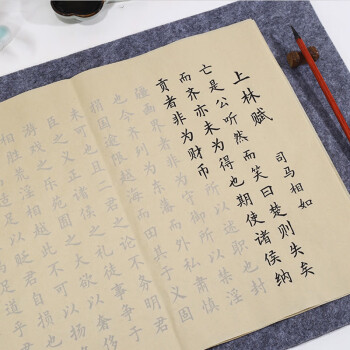 上林赋
司马相如
亡是公听然而笑曰楚则失矣
而齐亦未为得也期使诸侯纳
贡者非为财币所以述职也封
疆画界者非为守御所以禁淫
也今齐列为东藩而外私肃慎
捐国逾限越海而田其于义固
未可也且二君之论不务明君
臣之义正诸侯之礼徒事争于
游戏之乐苑囿之大欲以奢侈
相胜荒淫相越此不可以扬
足以贬君自损也